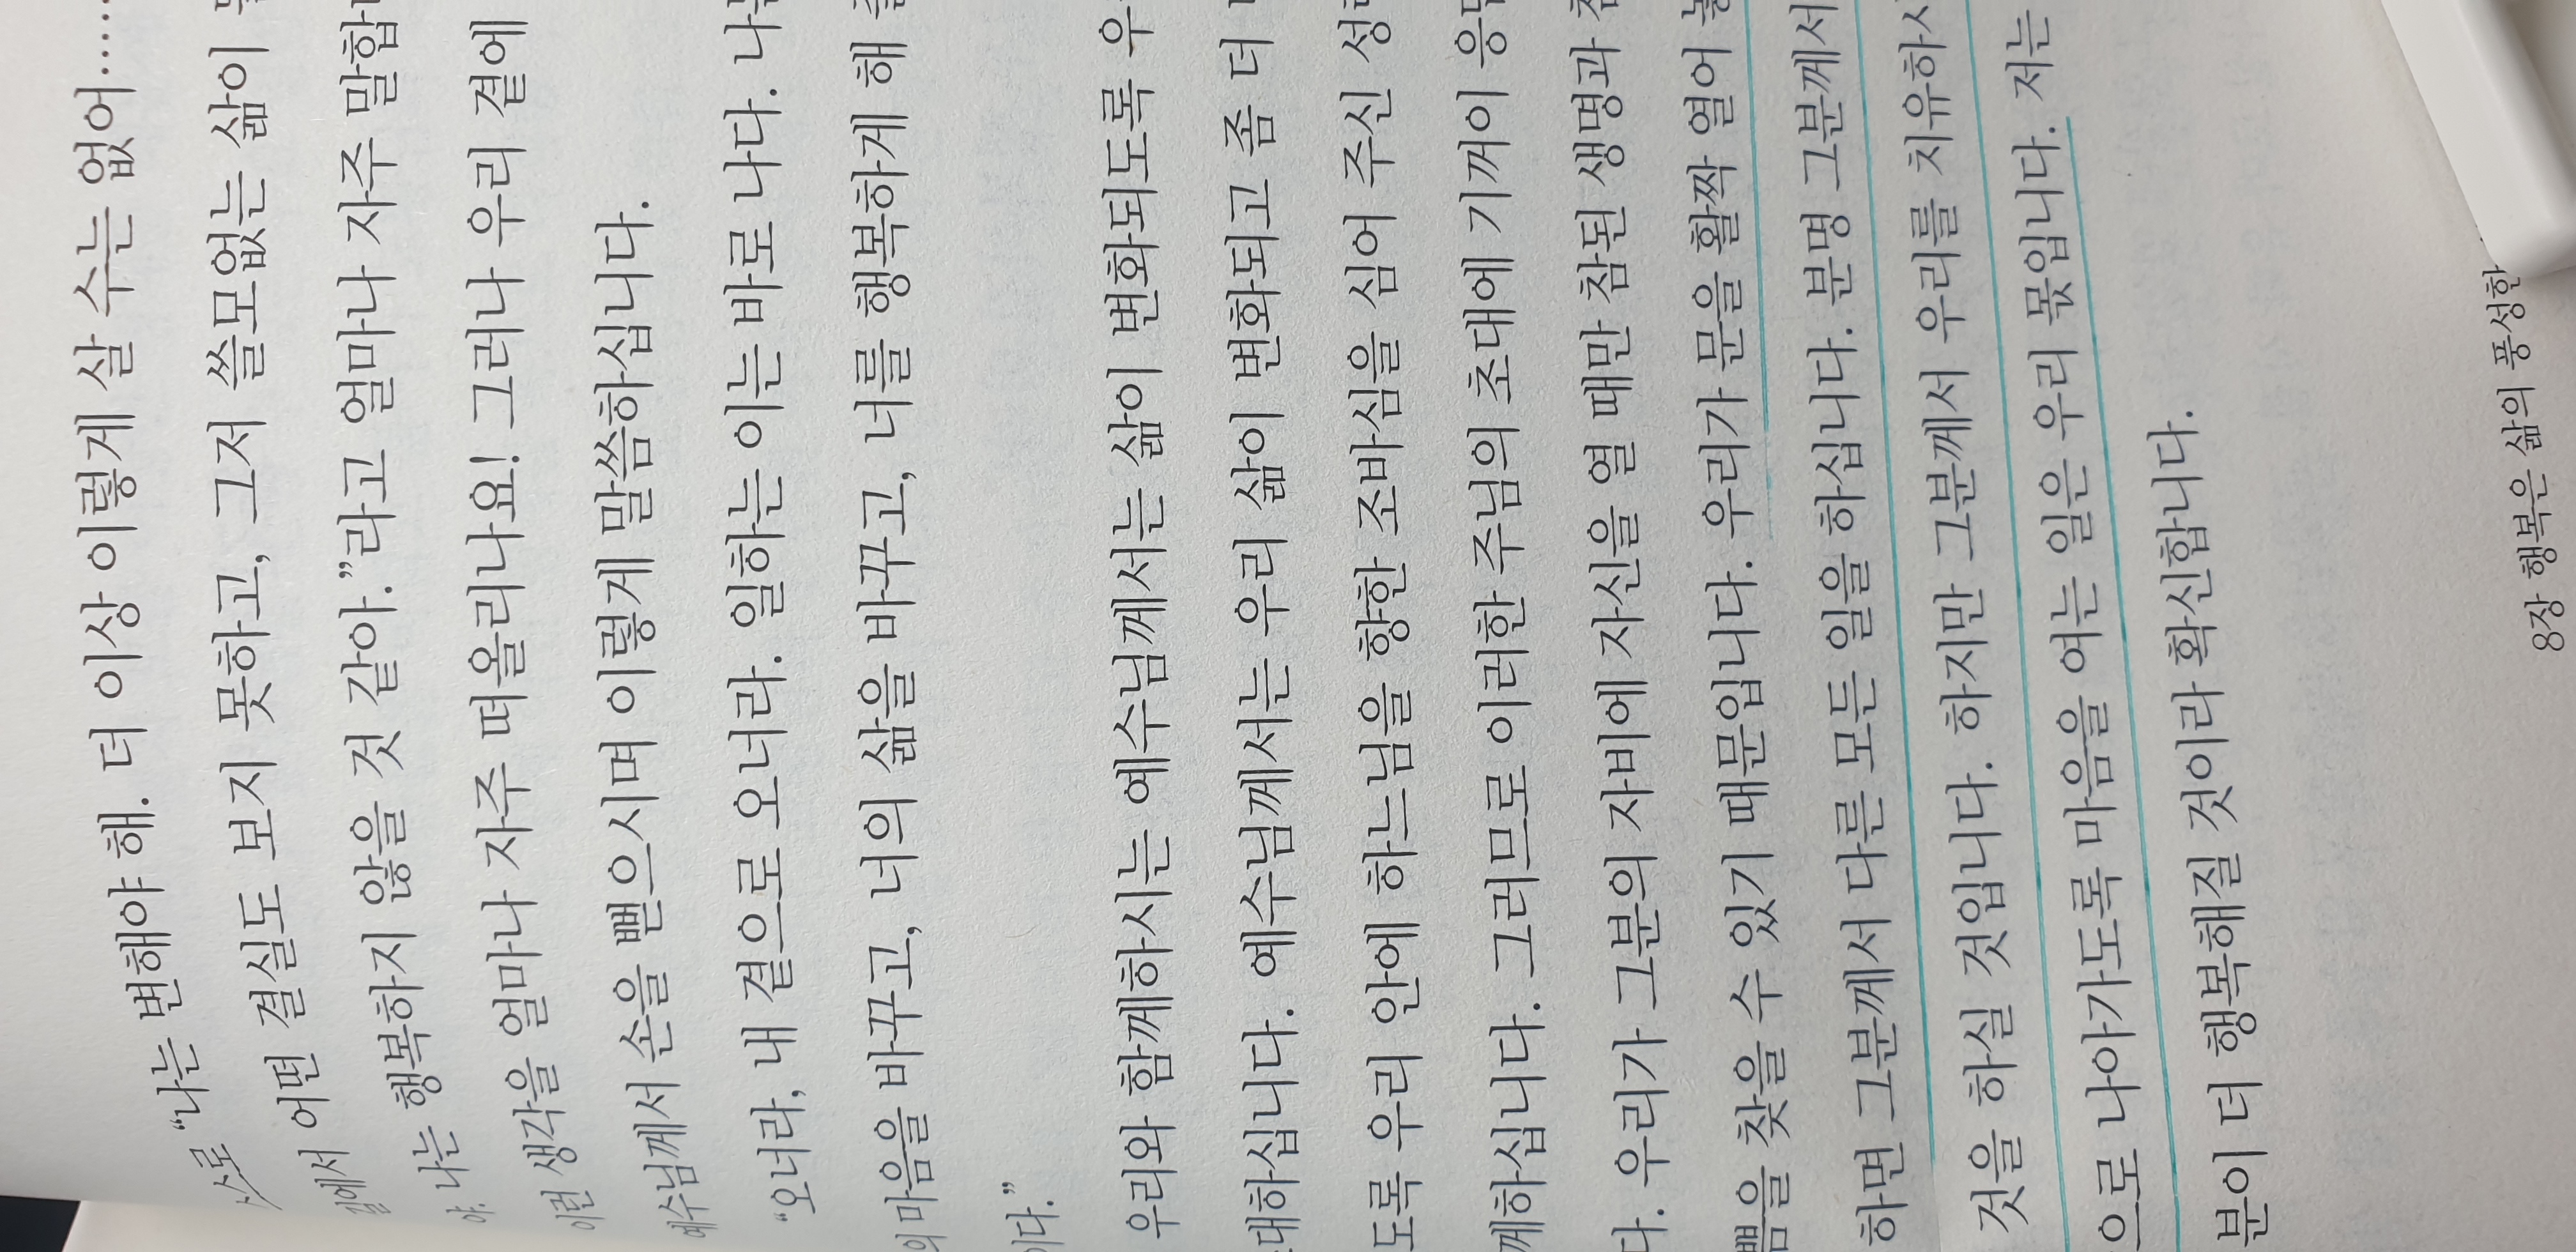 스스로 “나는 변해야 해. 더 이상 이렇게 살 수는 없어……
길에서 어떤 결실도 보지 못하고, 그저 쓸모없는 삶이
야. 나는 행복하지 않을 것 같아.”라고 얼마나 자주 말합
이런 생각을 얼마나 자주 떠올리나요! 그러나 우리 곁에
예수님께서 손을 뻗으시며 이렇게 말씀하십니다.
“오너라, 내 곁으로 오너라. 일하는 이는 바로 나다. 나는
의 마음을 바꾸고, 너의 삶을 바꾸고, 너를 행복하게 해
이다.”
우리와 함께하시는 예수님께서는 삶이 변화되도록 우
대하십니다. 예수님께서는 우리 삶이 변화되고 좀 더
도록 우리 안에 하느님을 향한 조바심을 심어 주신 성
께하십니다. 그러므로 이러한 주님의 초대에 기꺼이 응답
다. 우리가 그분의 자비에 자신을 열 때만 참된 생명과 참
쁨을 찾을 수 있기 때문입니다. 우리가 문을 활짝 열어 놓
하면 그분께서 다른 모든 일을 하십니다. 분명 그분께서
것을 하실 것입니다. 하지만 그분께서 우리를 치유하시
으로 나아가도록 마음을 여는 일은 우리 몫입니다. 저는
분이 더 행복해질 것이라 확신합니다.
8장 행복은 삶의 풍성한